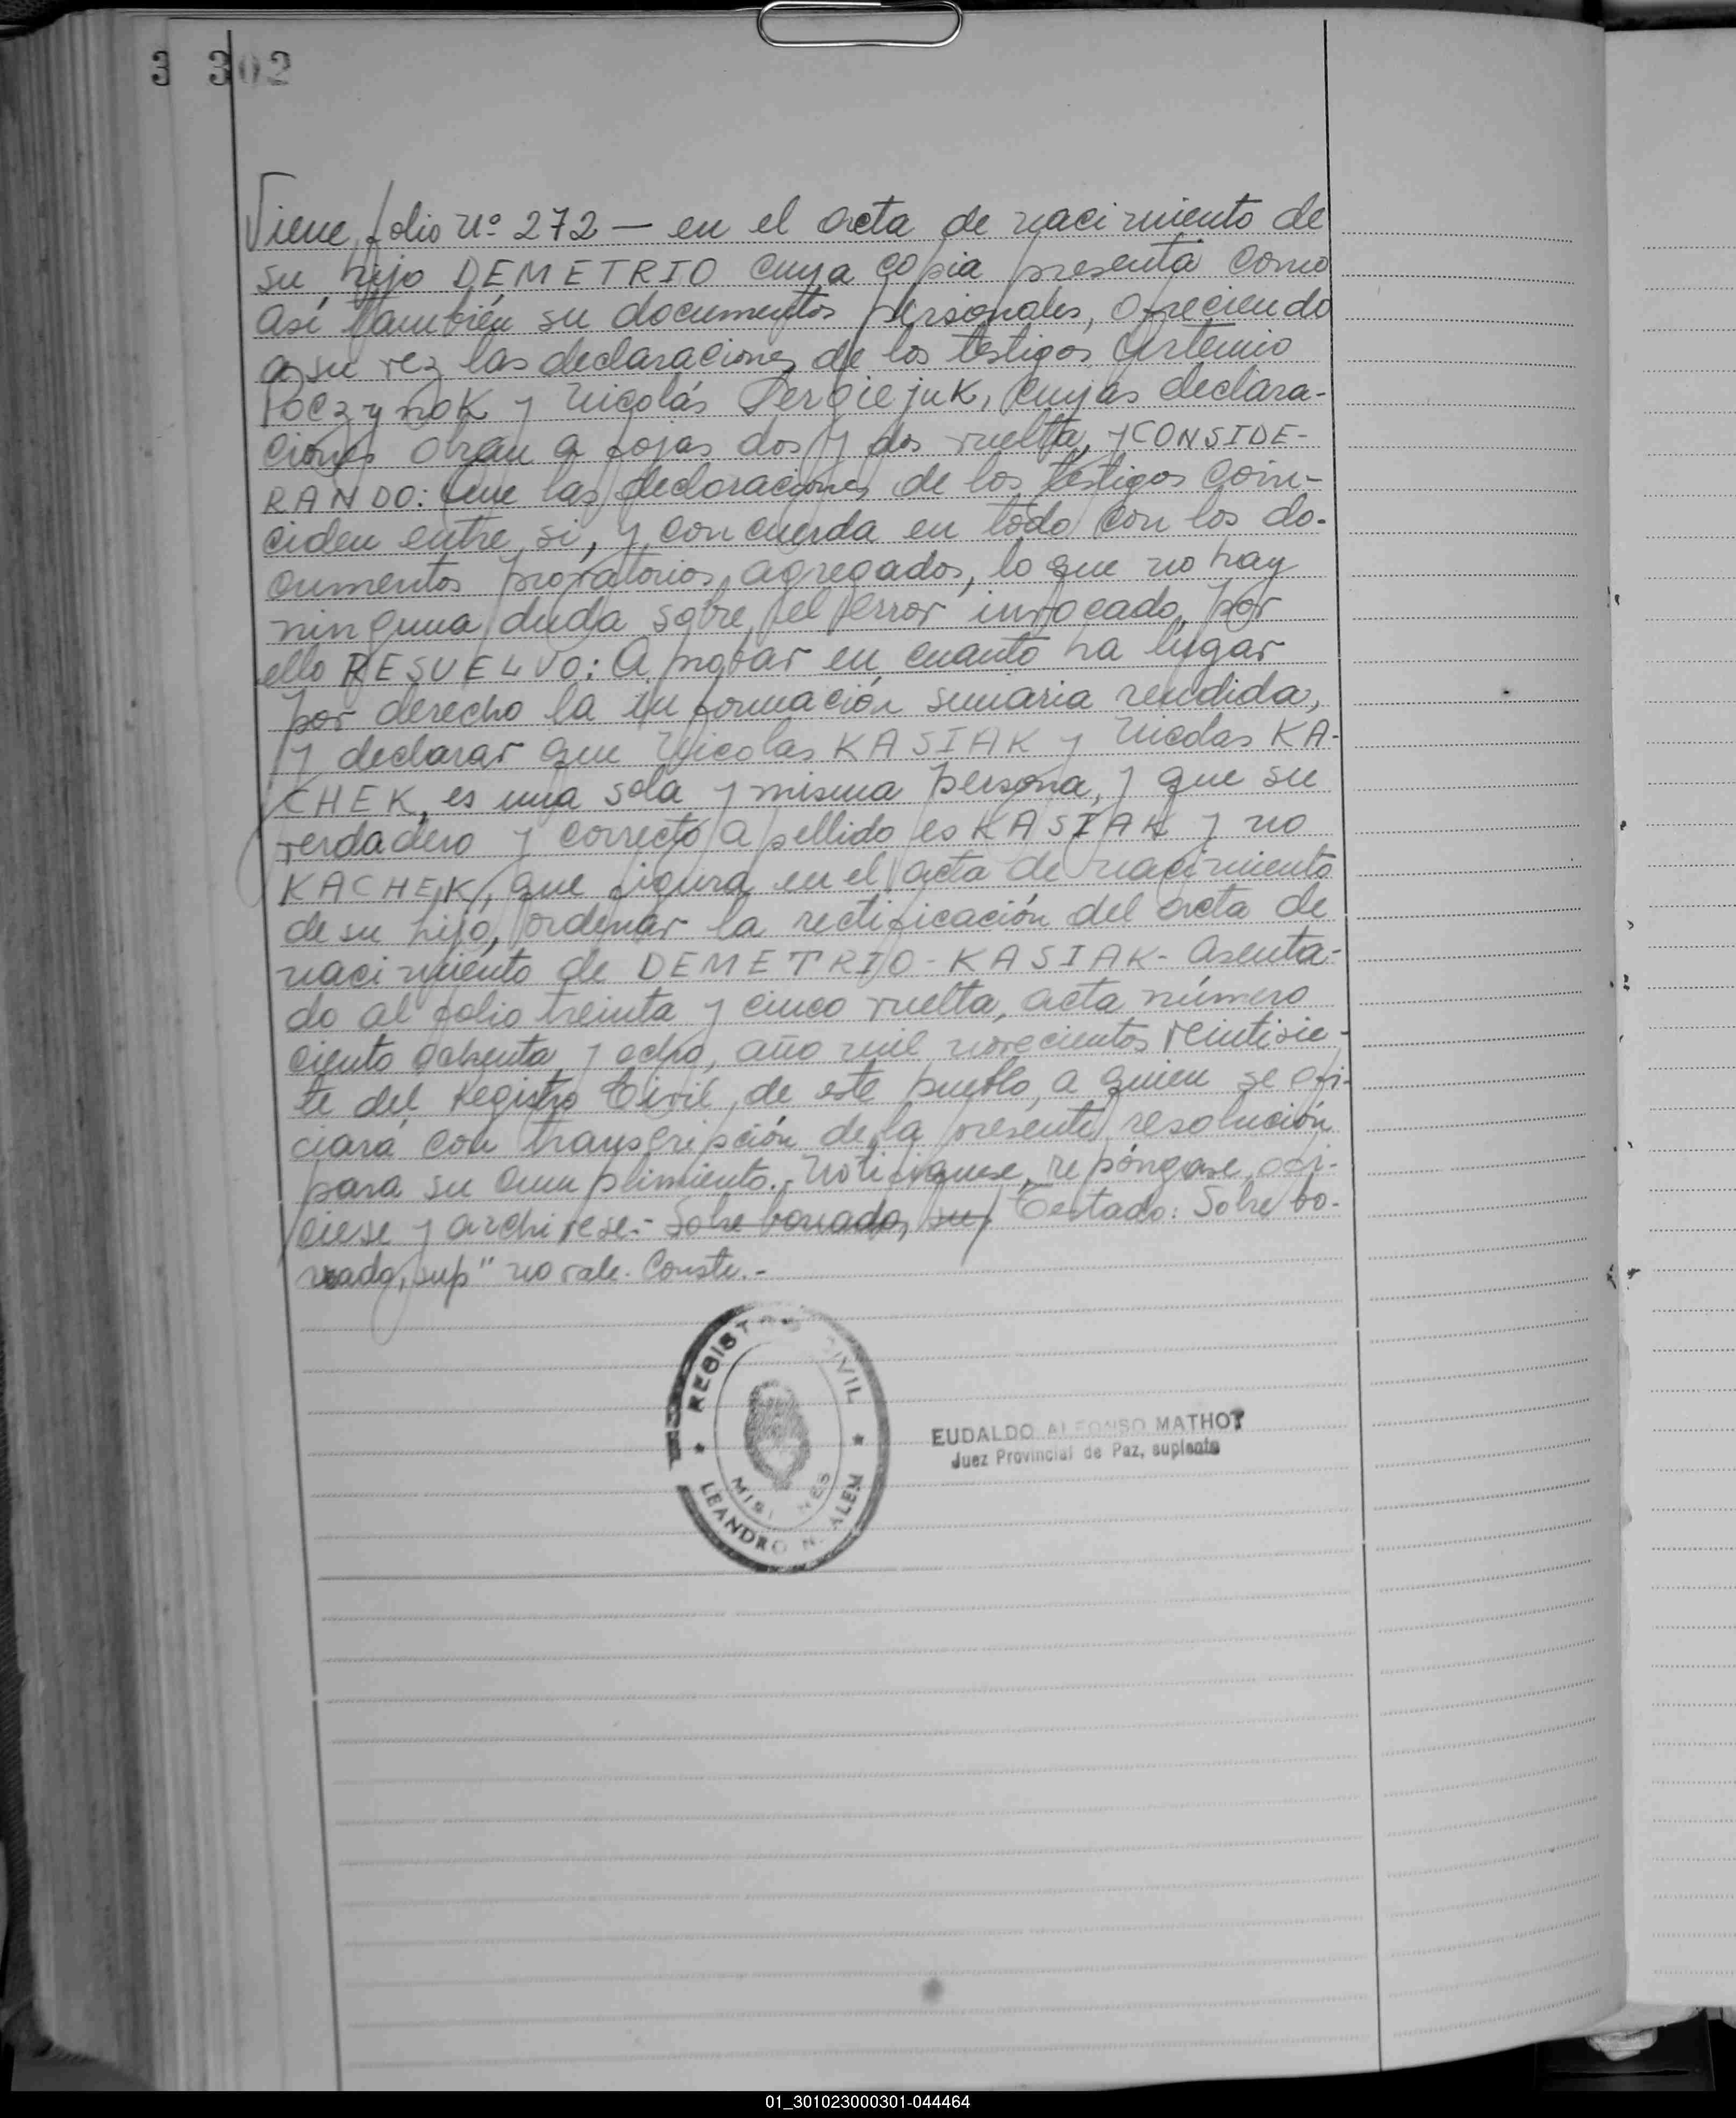 3 302
Viene folio Nº 272 — en el acta de nacimiento de
su hijo DEMETRIO cuya copia presenta como
así también su documentos personales, ofreciendo
a su vez las declaraciones de los testigos Artemio
Poczynok y Nicolás Sergiejuk, cuyas declara-
ciones obran a fojas dos y dos vuelta, y CONSIDE-
RANDO: Que las declaraciones de los testigos coin-
ciden entre si, y concuerda en todo con los do-
cumentos probatorios agregados, lo que no hay
ninguna duda sobre el error invocado, por
ello RESUELVO: Aprobar en cuanto ha lugar
por derecho la información sumaria rendida,
y declarar que Nicolas KASIAK y Nicolas KA-
CHEK, es una sola y misma persona, y que su
verdadero y correcto apellido es KASIAK y no
KACHEK, que figura en el acta de nacimiento
de su hijo, ordenar la rectificación del acta de
nacimiento de DEMETRIO - KASIAK - Asenta-
do al folio treinta y cinco vuelta, acta número
ciento ochenta y ocho, año mil novecientos veintisie-
te del Registro Civil, de este pueblo, a quien se ofi-
ciará con transcripción de la presente resolución
para su cumplimiento.- Notifiquese, repóngase, ofi-
ciese y archivese.- Sobre borrado, su/ Testado: Sobre bo-
rrado, sup" no vale. Conste.-
REGISTRO CIVIL
MISIONES
LEANDRO N. ALEM
EUDALDO ALFONSO MATHOT
Juez Provincial de Paz, suplente
01_301023000301-044464